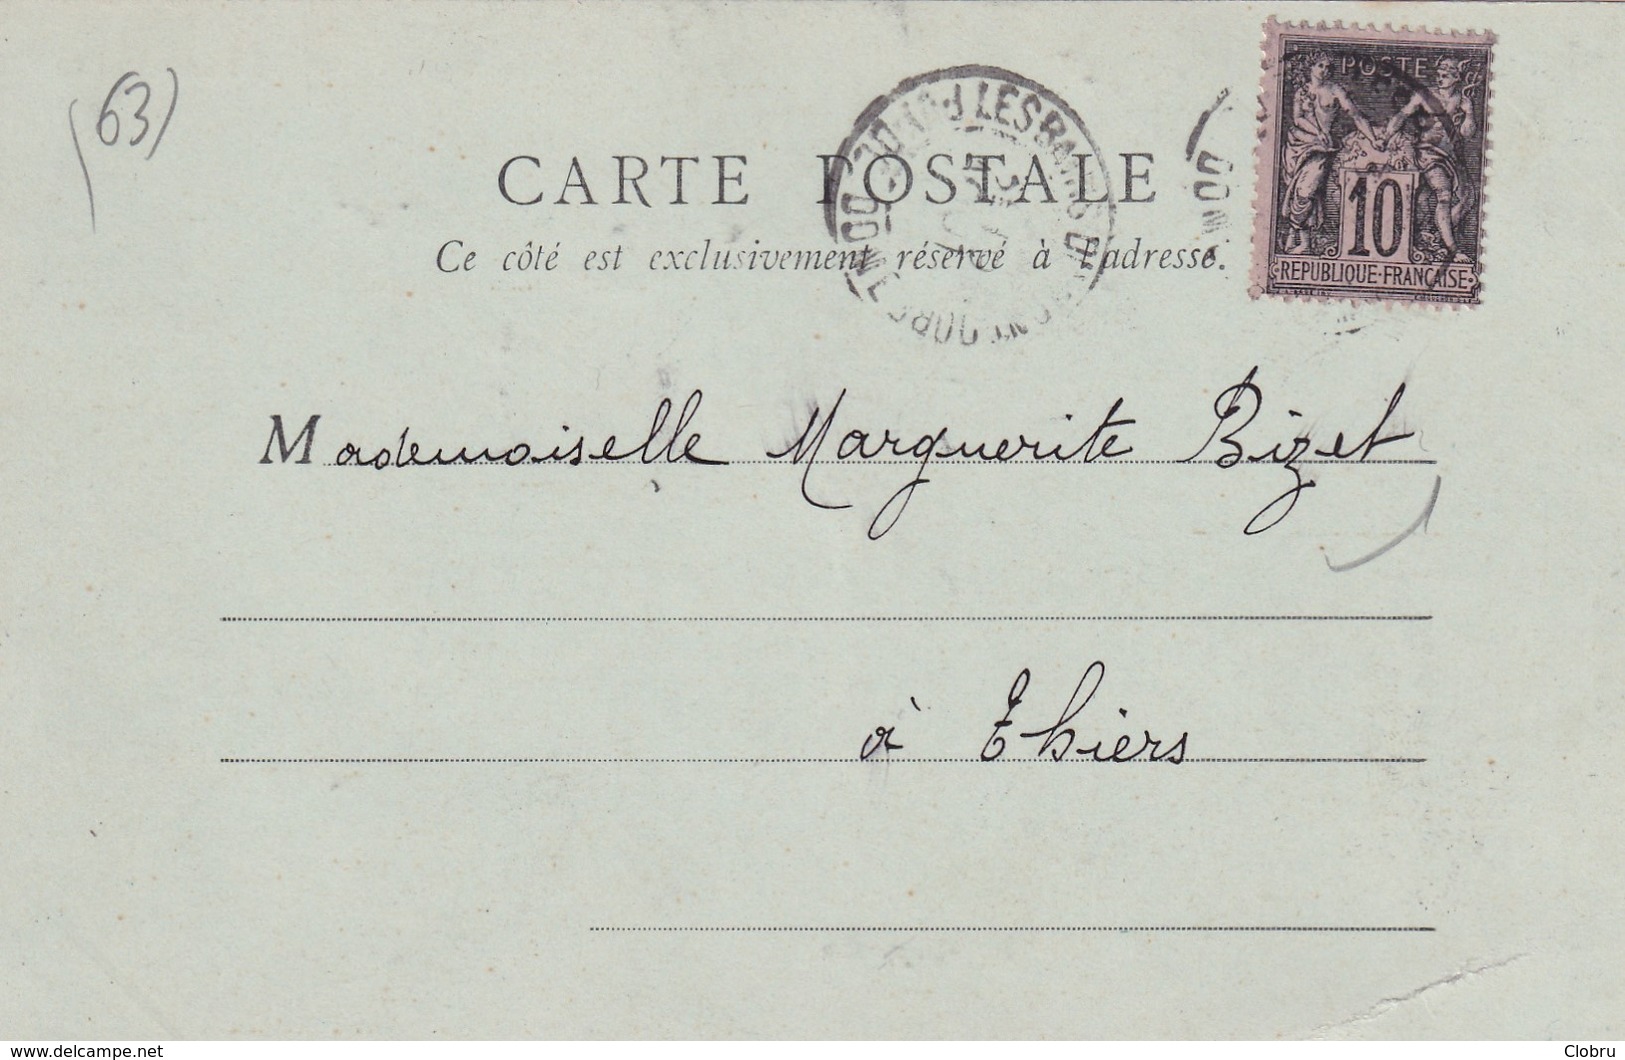 (63)
POSTE
10
REPUBLIQUE-FRANÇAISE
CARTE POSTALE
Ce côté est exclusivement réservé à l'adresse.
Mademoiselle Marguerite Bizet
à Thiers
www.delcampe.net
Clobru